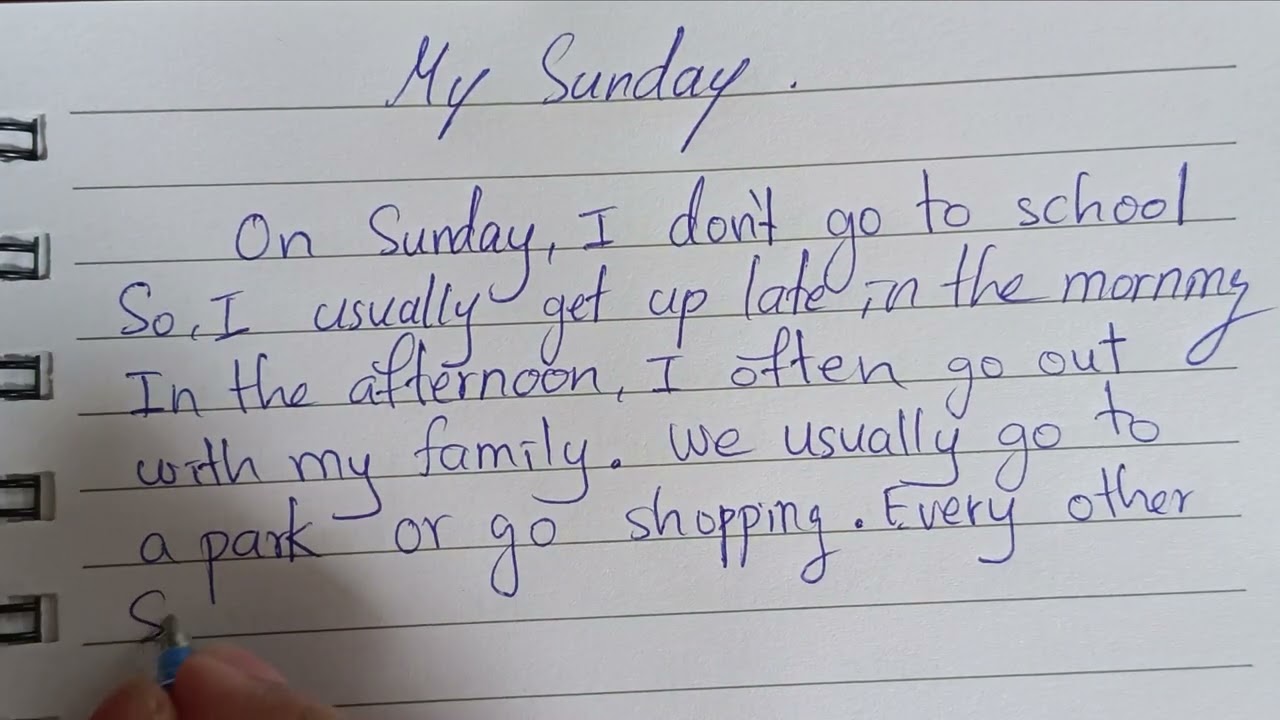 My Sunday.
On Sunday, I don't go to school
So, I usually get up late in the morning
In the afternoon, I often go out
with my family. We usually go to
a park or go shopping. Every other
S